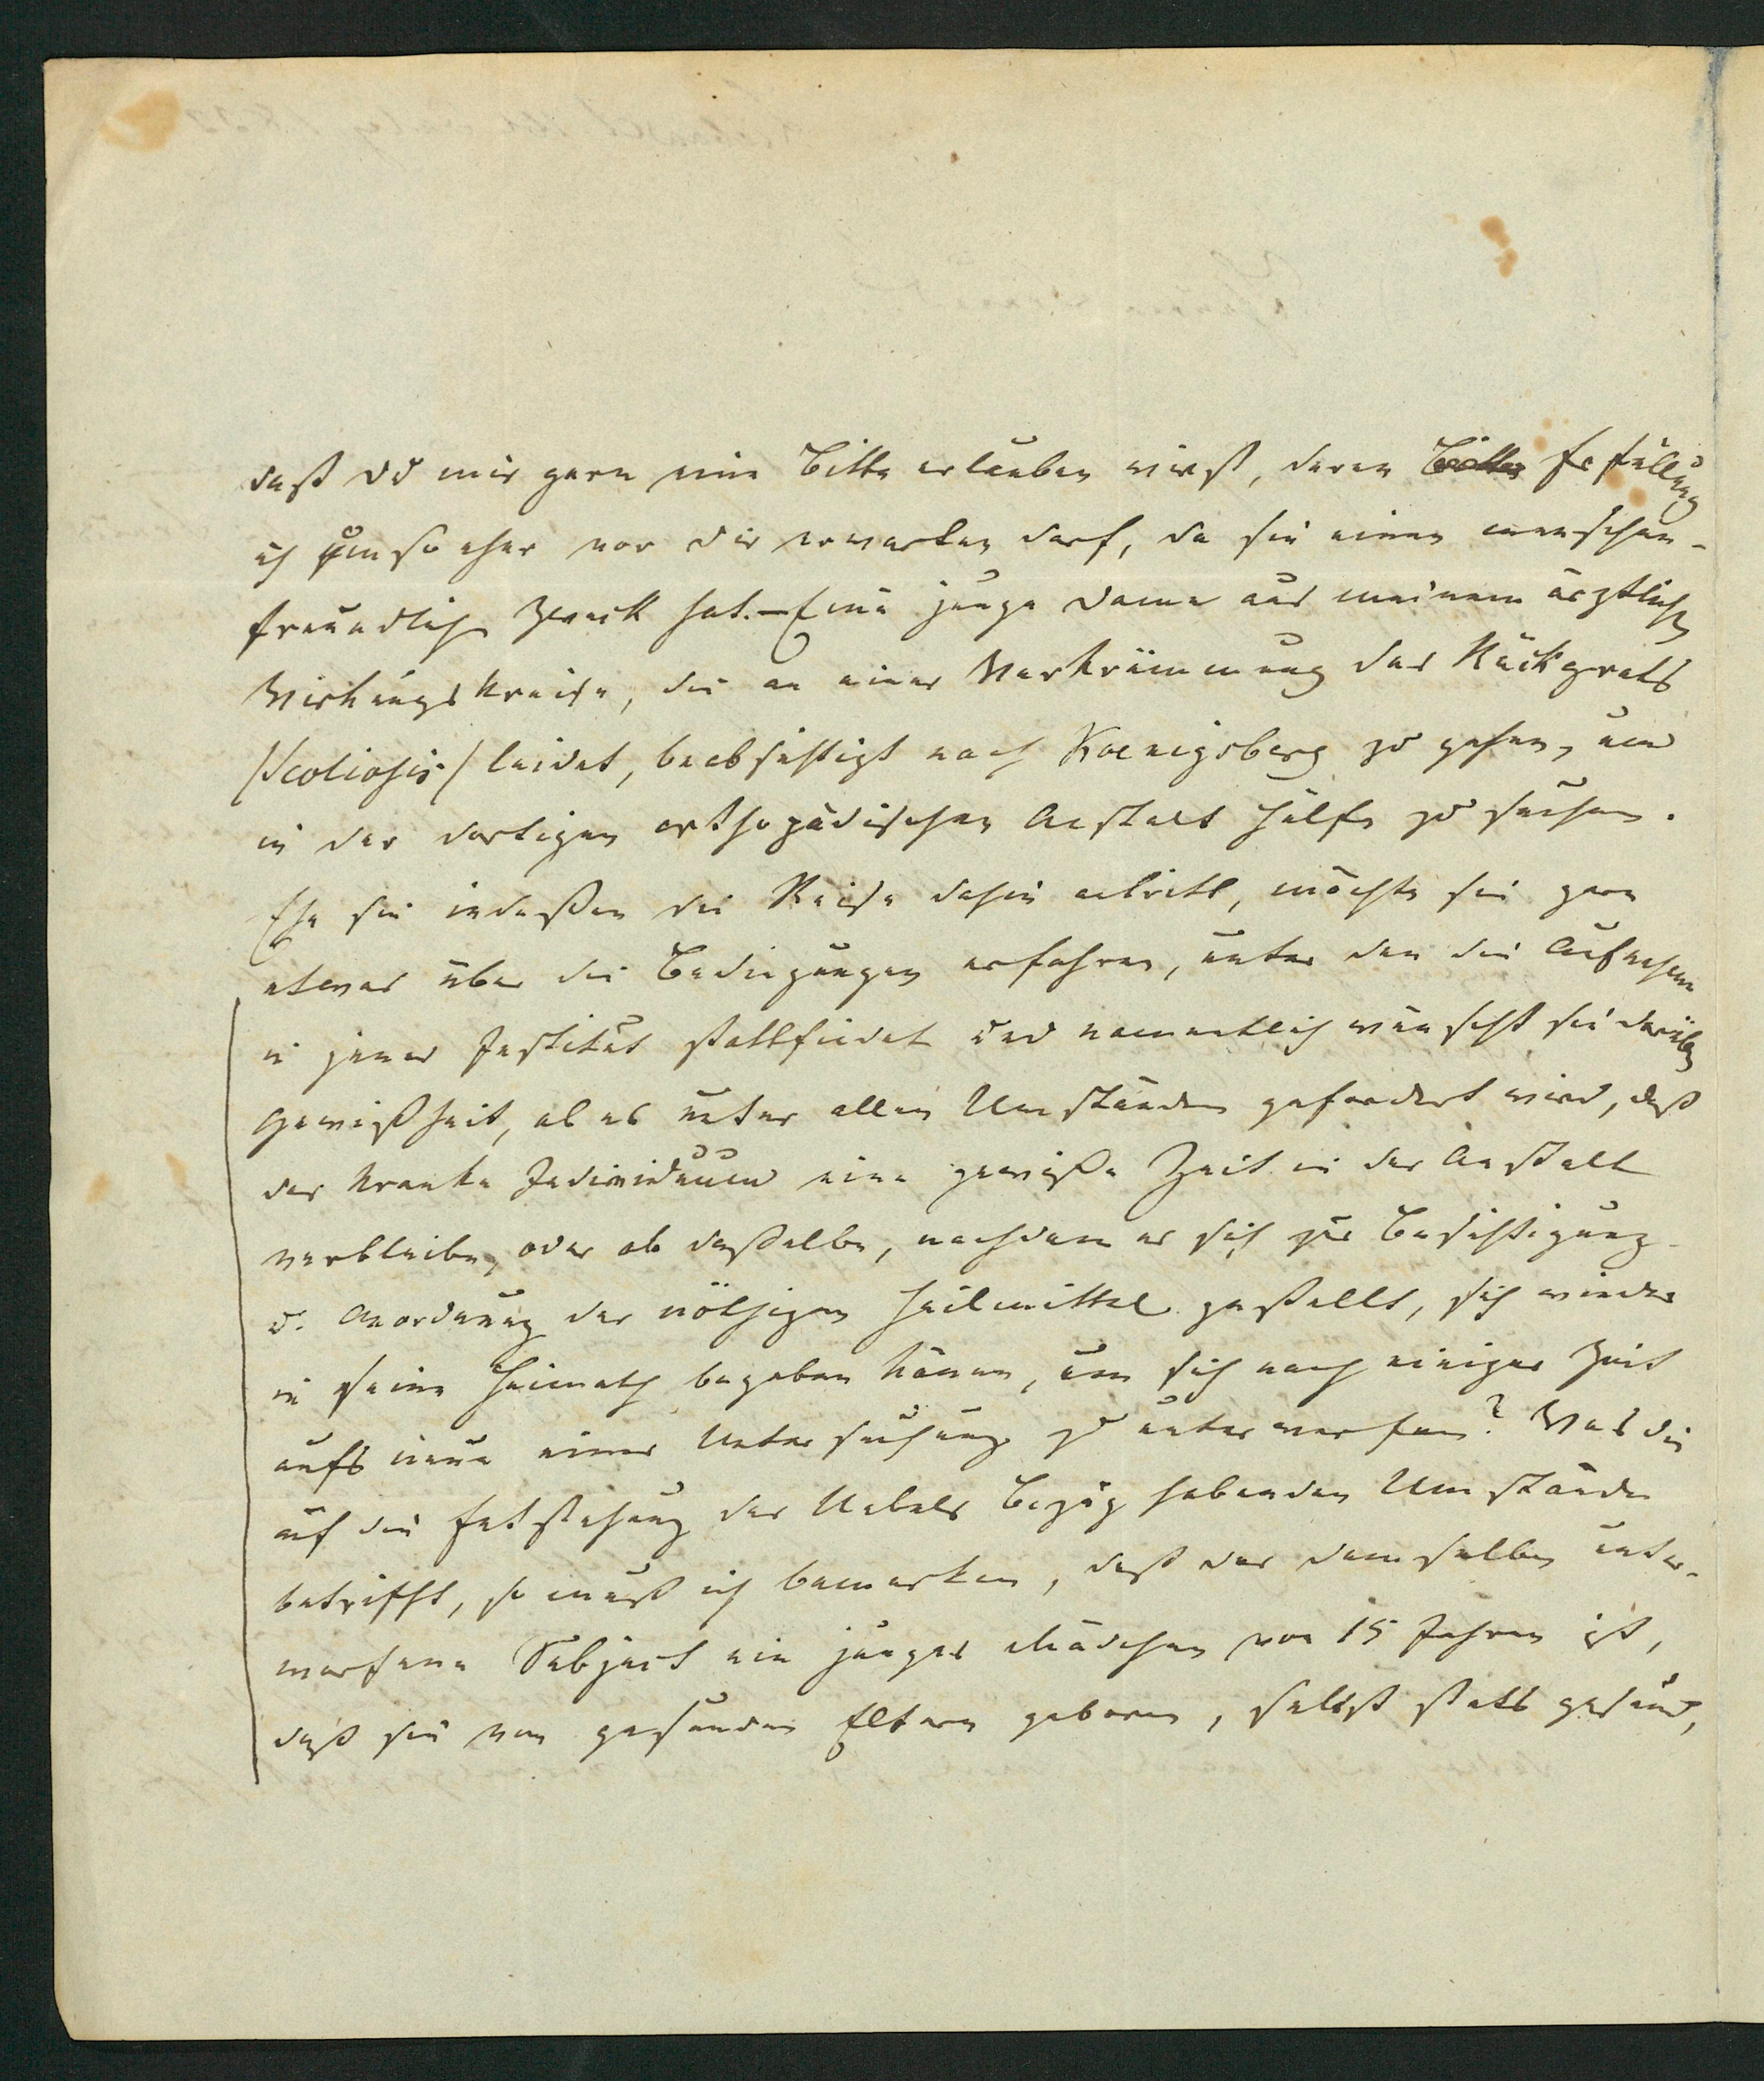 daß du mir gern eine Bitte erlauben wirst, deren Erfüllung
ich um so eher von dir erwarten darf, da sie einen menschen-
freundlichen Zweck hat. — Eine junge Dame aus meinem ärztlichen
Wirkungskreise, die an einer Verkrümmung des Rückgrats
/Scoliosis/ leidet, beabsichtigt nach Koenigsberg zu gehen, um
in der dortigen orthopädischen Anstalt Hülfe zu suchen.
Ehe sie indeßen die Reise dahin antritt, möchte sie gern
etwas über die Bedingungen erfahren, unter den die Aufnahme
in jenes Institut stattfindet und namentlich wünscht sie darüber
Gewißheit, ob es unter allen Umständen gefordert wird, daß
das kranke Individuum eine gewiße Zeit in der Anstalt
verbleibe, oder ob daßelbe, nachdem es sich zur Besichtigung
u. Anordnung der nöthigen Heilmittel gestellt, sich wieder
in seine Heimath begeben könne, um sich nach einiger Zeit
aufs neue einer Untersuchung zu unterwerfen? Was die
auf die Entstehung des Uebels Bezug habenden Umstände
betrifft, so muß ich bemerken, daß das demselben unter-
worfene Subject ein junges Mädchen von 15 Jahren ist,
daß sie von gesunden Eltern geboren, selbst stets gesund,